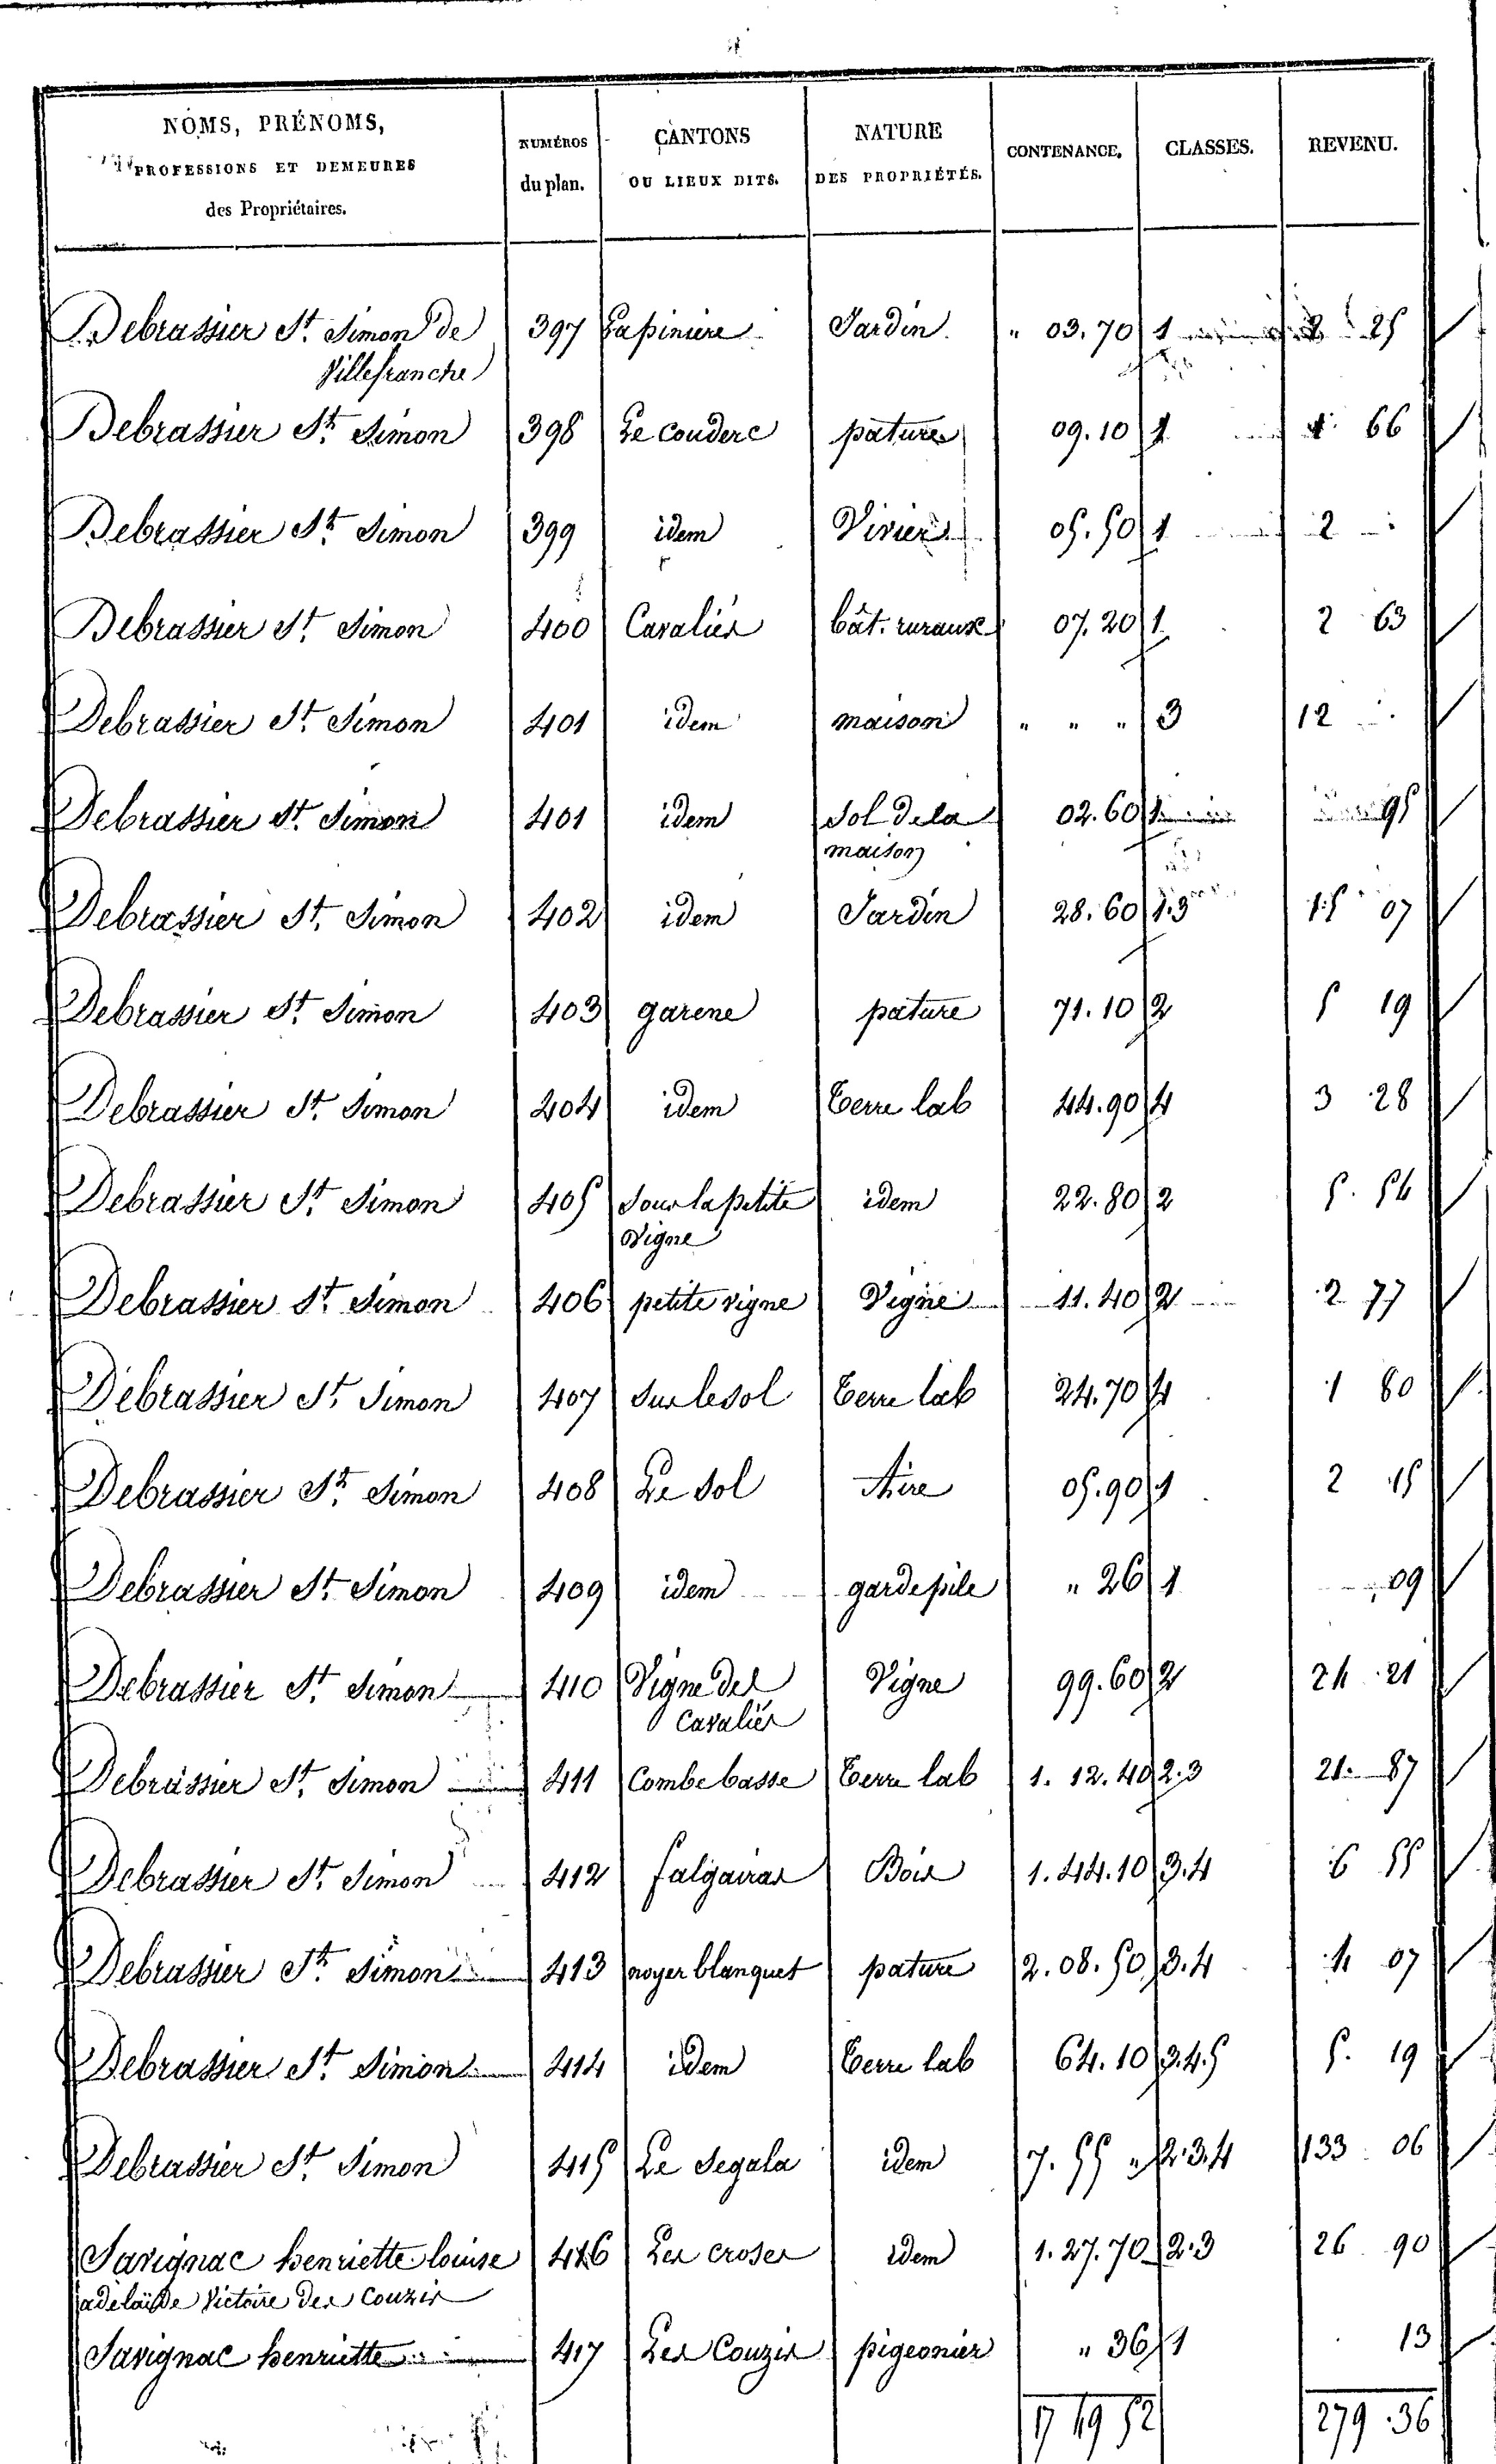 NOMS, PRÉNOMS,
PROFESSIONS ET DEMEURES
des Propriétaires.
NUMÉROS
du plan.
CANTONS
OU LIEUX DITS.
NATURE
DES PROPRIÉTÉS.
CONTENANCE.
CLASSES.
REVENU.
Debrassier St. Simon de 397 Lapiniere Jardin " 03.70 1 2 25
Villefranche
Debrassier St. Simon 398 Le Couderc pature 09.10 1 66
Debrassier St. Simon 399 idem Vivier 05.50 1 2
Debrassier St. Simon 400 Cavalier bât. ruraux 07.20 1 2 63
Debrassier St. Simon 401 idem maison " " " 3 12
Debrassier St. Simon 401 idem Sol de la 02.60 1 95
maison
Debrassier St. Simon 402 idem Jardin 28.60 1.3 15 07
Debrassier St. Simon 403 garene pature 71.10 2 5 19
Debrassier St. Simon 404 idem Terre lab 44.90 4 3 28
Debrassier St. Simon 405 Sous la petite idem 22.80 2 5.54
Vigne
Debrassier St. Simon 406 petite vigne Vigne 11.40 2 2 77
Debrassier St. Simon 407 Sur le sol Terre lab 24.70 4 1 80
Debrassier St. Simon 408 Le Sol Aire 05.90 1 2 15
Debrassier St. Simon 409 idem gardepile " 26 1 09
Debrassier St. Simon 410 Vigne del Vigne 99.60 2 24 21
Cavalier
Debrassier St. Simon 411 Combe basse Terre lab 1.12.40 2.3 21 87
Debrassier St. Simon 412 falgairas Bois 1.44.10 3.4 6 55
Debrassier St. Simon 413 noyer blanquet pature 2.08.50 3.4 4 07
Debrassier St. Simon 414 idem Terre lab 64.10 3.4.5 5. 19
Debrassier St. Simon 415 Le Segala idem 7.55 " 2.3.4 133 06
Savignac henriette louise 416 Les croses idem 1.27.70 2.3 26 90
adelaïde Victoire des Couzis
Savignac henriette 417 Les Couzis pigeonier " 36 1 13
17 19 52 279.36